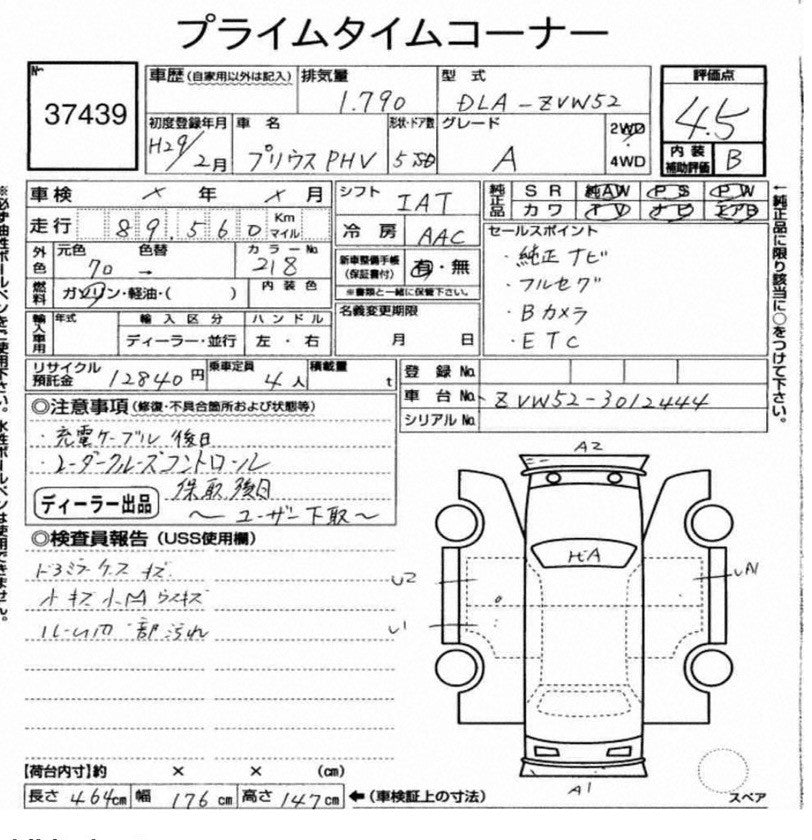 プライムタイムコーナー
No
37439
車歴(自家用以外は記入) 排気量 型式 評価点
1.790 DLA-ZVW52 4.5
初度登録年月 車名 形状・ドア数 グレード 2WD
H29/2月 プリウスPHV 5 SD A 4WD
内装補助評価 B
車検 × 年 × 月 シフト IAT 純正品 SR 純AW PS PW
カワ TV ナビ エアB
走行 89.560 Km マイル 冷房 AAC
セールスポイント
・純正ナビ
・フルセグ
・Bカメラ
・ETC
外色 元色 色替 カラーNo
70 → 218
新車整備手帳(保証書付) 有・無
※書類と一緒に保管下さい。
燃料 ガソリン・軽油・( ) 内装色
名義変更期限
月 日
輸入車用 年式 輸入区分 ハンドル
ディーラー・並行 左・右
リサイクル預託金 12840円 乗車定員 4人 積載量 t
登録No.
車台No. ZVW52-3012444
シリアルNo.
◎注意事項(修復・不具合箇所および状態等)
・充電ケーブル後日
・レーダークルーズコントロール
保取後日
ディーラー出品
〜ユーザー下取〜
◎検査員報告(USS使用欄)
ドアミラーケースキズ
小キズ小凹ウスキズ
ルーム内一部汚れ
A2
ヒA
U2
UA1
U1
A1
スペア
【荷台内寸】約 × × (cm)
長さ 464cm 幅 176cm 高さ 147cm ←(車検証上の寸法)
←純正品に限り該当に○をつけて下さい。